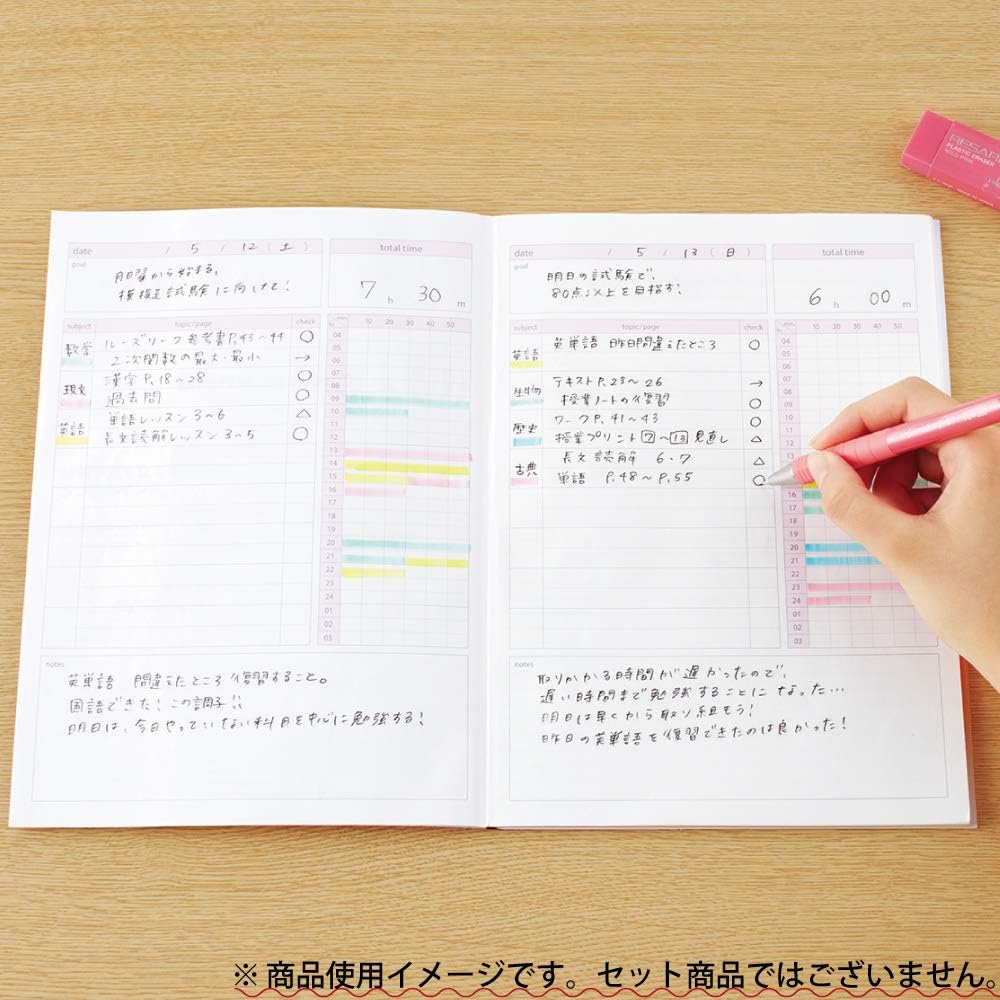 RESARE
PLASTIC ERASER
MILD PINK
date / 5 / 12 (土) total time
goal 月曜から始まる、
模擬試験に向けて!
7 h 30 m
subject topic/page check 10 20 30 40 50
数学 ルーズリーフ参考書P.43~44 ○
2次関数の最大・最小 →
現文 漢字 P.18~28 ○
過去問 ○
英語 単語レッスン 3~6 △
長文読解レッスン 3~5 ○
04
05
06
07
08
09
10
11
12
13
14
15
16
17
18
19
20
21
22
23
24
01
02
03
notes
英単語 間違えたところ復習すること。
国語できた!この調子!!
明日は、今日やっていない科目を中心に勉強する!
date / 5 / 13 (日) total time
goal 明日の試験で、
80点以上を目指す!
6 h 00 m
subject topic/page check 10 20 30 40 50
英語 英単語 昨日間違えたところ ○
生物 テキスト P.23~26 →
授業ノートの復習 ○
歴史 ワーク P.41~43 ○
授業プリント7~13見直し △
古典 長文読解 6、7 △
単語 P.48~P.55 ○
04
05
06
07
08
09
10
11
12
13
16
17
18
19
20
21
22
23
24
01
02
03
notes
取りかかる時間が遅かったので、
遅い時間まで勉強することになった…
明日は早くから取り組もう!
昨日の英単語を復習できたのは良かった!
※商品使用イメージです。セット商品ではございません。